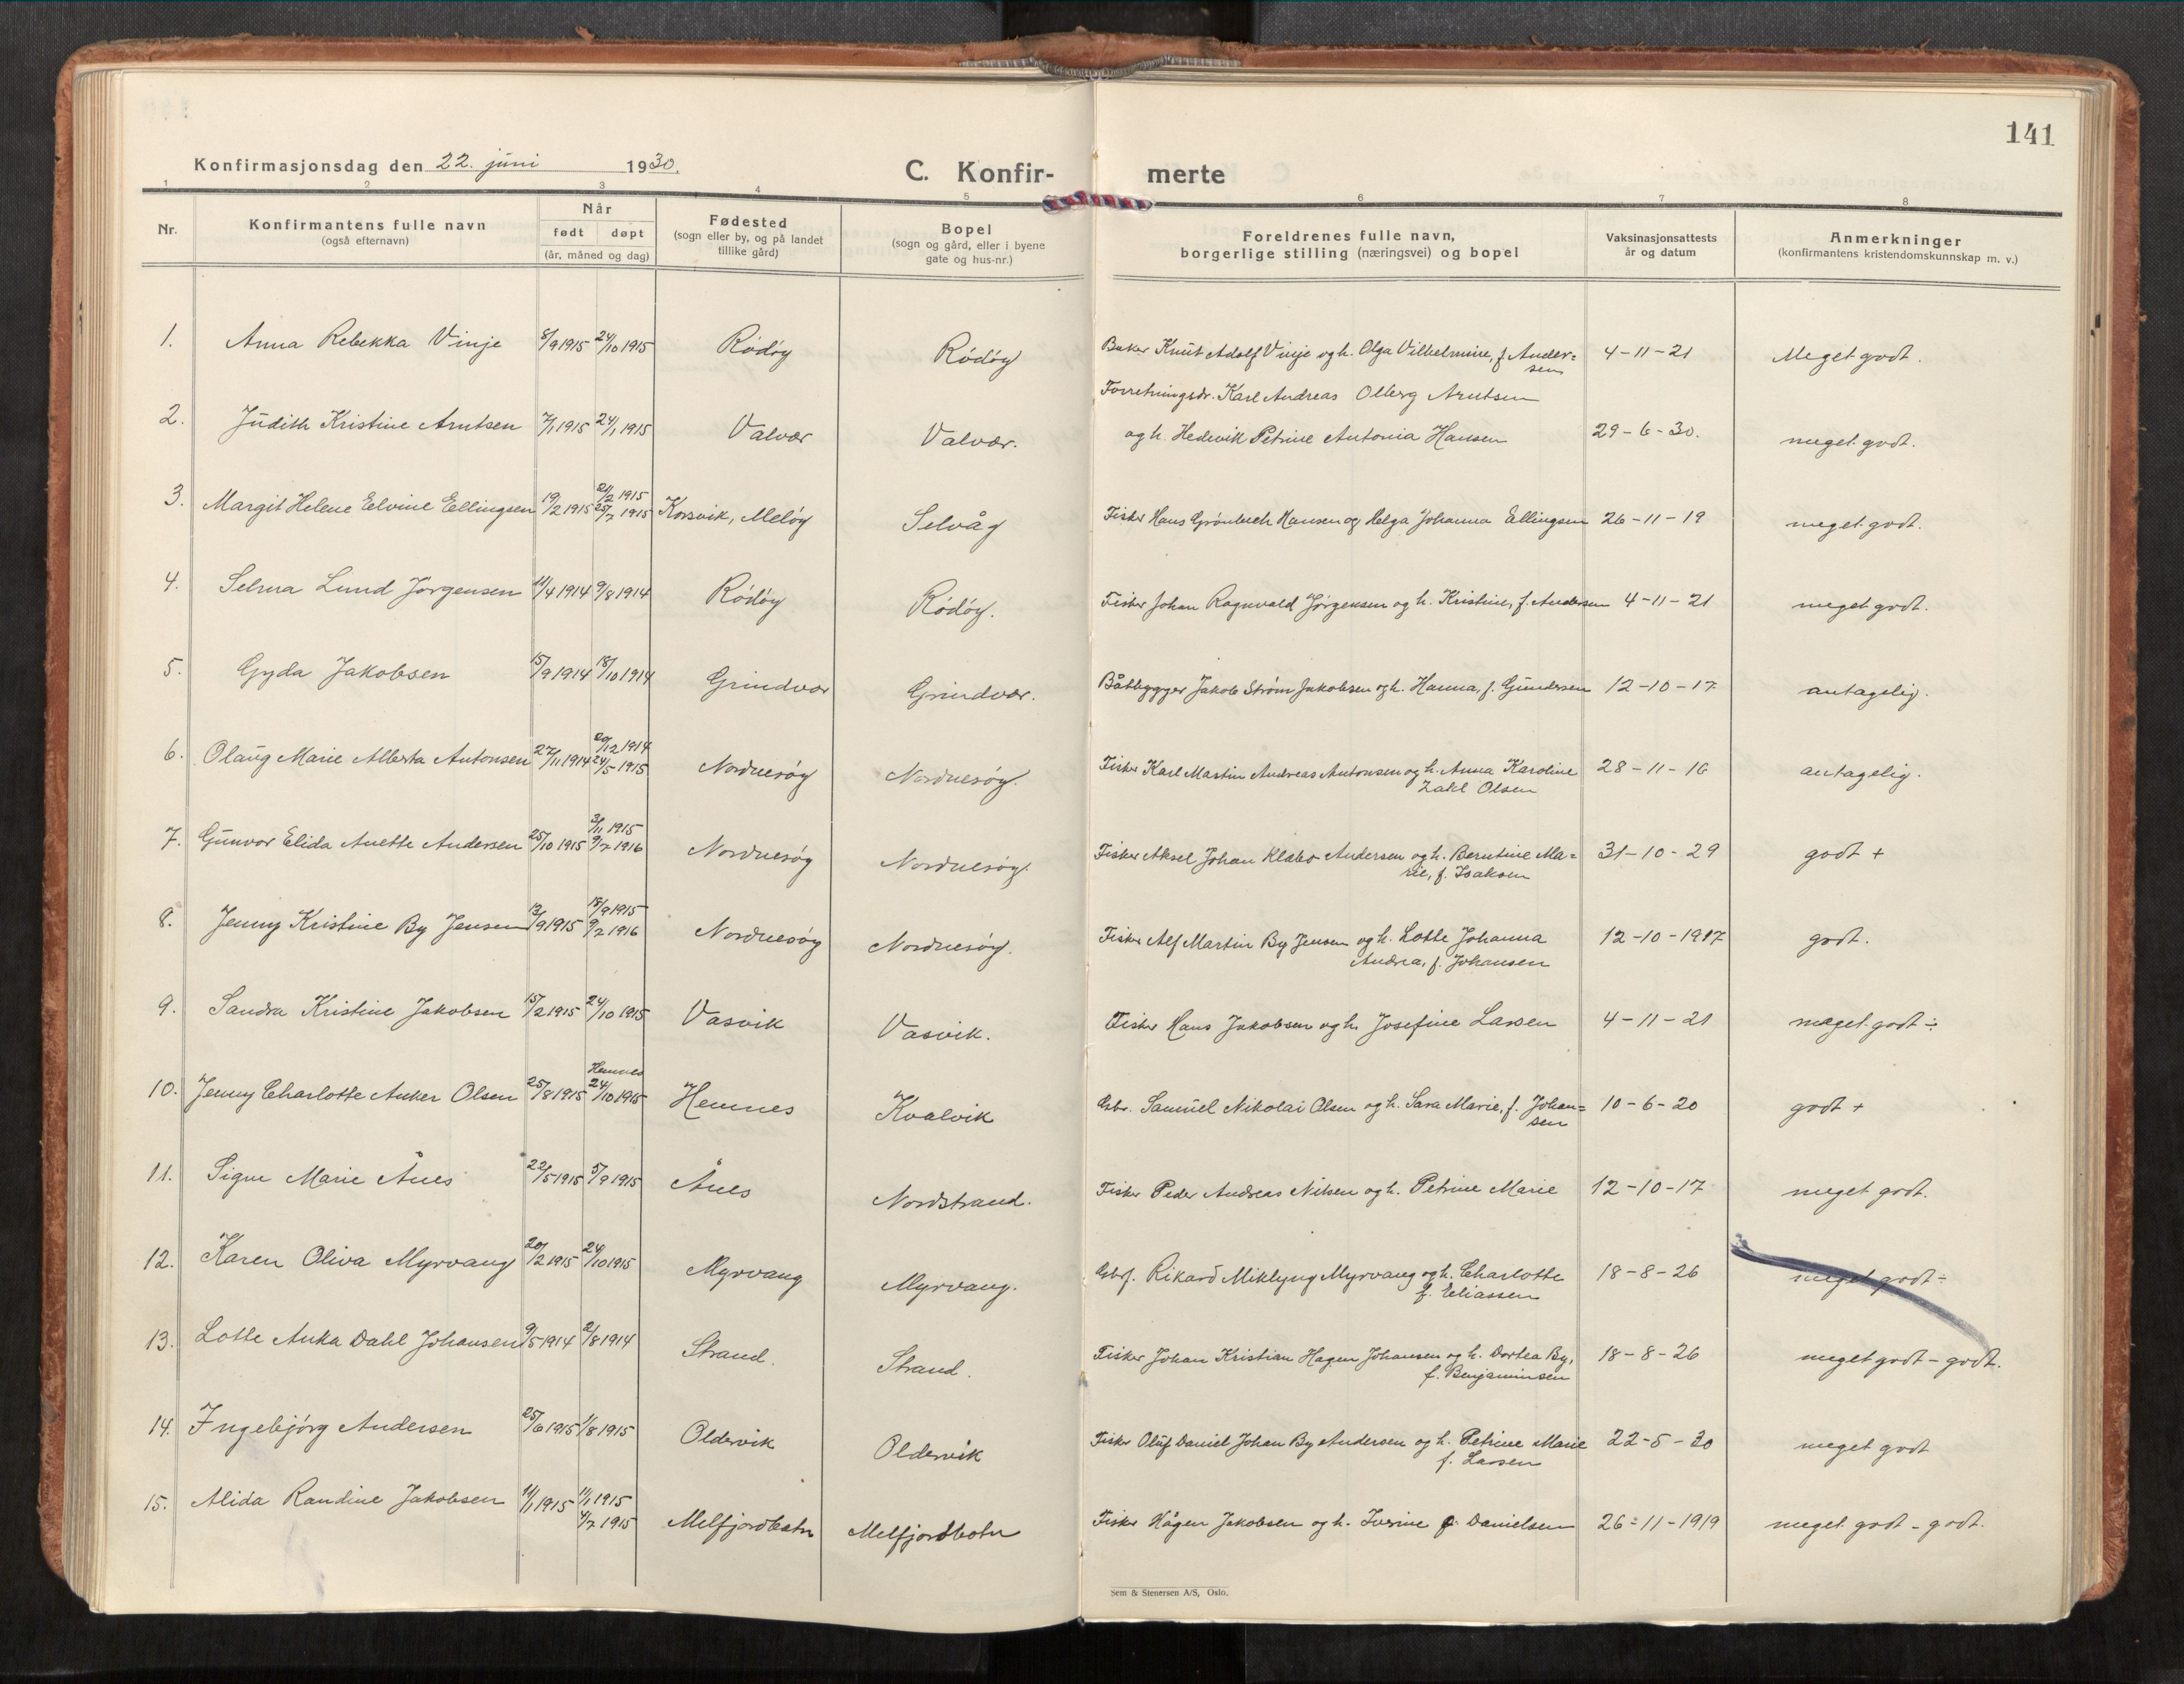 141
Konfirmasjonsdag den 22. juni 1930.
C. Konfir- merte
1 2 3 4 5 6 7 8
Nr.
Konfirmantens fulle navn
(også efternavn)
Når
født døpt
(år, måned og dag)
Fødested
(sogn eller by, og på landet
tillike gård)
Bopel
(sogn og gård, eller i byene
gate og hus-nr.)
Foreldrenes fulle navn,
borgerlige stilling (næringsvei) og bopel
Vaksinasjonsattests
år og datum
Anmerkninger
(konfirmantens kristendomskunnskap m. v.)
1. Anna Rebekka Vinje 8/9 1915 24/10 1915 Rödöy Rödöy Baker Knut Adolf Vinje og h. Olga Vilhelmine, f. Ander=
sen 4-11-21 Meget godt.
Forretningsdr. Karl Andreas Olberg Arntsen
2. Judith Kristine Arntsen 7/1 1915 24/1 1915 Valvær Valvær. og h. Hedevik Petrine Antonia Hansen 29-6-30. meget godt.
21/2 1915
3. Margit Helene Elvine Ellingsen 19/2 1915 25/7 1915 Korsvik, Meløy Selvåg Fisker Hans Grønbech Hansen og Helga Johanna Ellingsen 26-11-19 meget godt.
4. Selma Lund Jørgensen 11/4 1914 9/8 1914 Rödöy Rödöy. Fisker Johan Ragnvald Jørgensen og h. Kristine, f. Andersen 4-11-21 meget godt.
5. Gyda Jakobsen 15/9 1914 18/10 1914 Grindvær Grindvær. Båtbygger Jakob Strøm Jakobsen og h. Hanna, f. Gundersen 12-10-17 antagelig.
20/12 1914
6. Olaug Marie Alberta Antonsen 27/11 1914 24/5 1915 Nordnesøy Nordnesøy. Fisker Karl Martin Andreas Antonsen og h. Anna Karoline
Zahl Olsen 28-11-16 antagelig.
3/11 1915
7. Gunvor Elida Anette Andersen 25/10 1915 9/7 1916 Nordnesøy Nordnesøy. Fisker Aksel Johan Klæbo Andersen og h. Berntine Ma=
rie, f. Isaksen 31-10-29 godt +
18/9 1915
8. Jenny Kristine By Jensen 13/9 1915 9/7 1916 Nordnesøy Nordnesøy. Fisker Alf Martin By Jensen og h. Lotte Johanna
Andrea, f. Johansen 12-10-1917 godt.
9. Sandra Kristine Jakobsen 15/2 1915 24/10 1915 Vasvik Vasvik. Fisker Hans Jakobsen og h. Josefine Larsen 4-11-21 meget godt ÷
Hemnes
10. Jenny Charlotte Anker Olsen 25/8 1915 24/10 1915 Hemnes Kvalvik Gbr. Samuel Nikolai Olsen og h. Sara Marie, f. Johan=
sen 10-6-20 godt +
11. Signe Marie Ånes 22/5 1915 5/9 1915 Ånes Nordstrand. Fisker Peder Andreas Nilsen og h. Petrine Marie 12-10-17 meget godt.
12. Karen Oliva Myrvang 20/2 1915 24/10 1915 Myrvang Myrvang. Gbrf. Rikard Miklyng Myrvang og h. Charlotte
f. Eliassen 18-8-26 meget godt ÷
13. Lotte Anka Dahl Johansen 9/5 1914 2/8 1914 Strand. Strand. Fisker Johan Kristian Hagen Johansen og h. Dortea By,
f. Benjaminsen 18-8-26 meget godt - godt.
14. Ingebjörg Andersen 25/6 1915 1/8 1915 Oldervik Oldervik Fisker Oluf Daniel Johan By Andersen og h. Petrine Marie
f. Larsen 22-5-30 meget godt
15. Alida Randine Jakobsen 11/1 1915 11/1 1915
4/7 1915 Melfjordbotn Melfjordbotn Fisker Hågen Jakobsen og h. Iverine f. Danielsen 26-11-1919 meget godt - godt.
Sem & Stenersen A/S, Oslo.